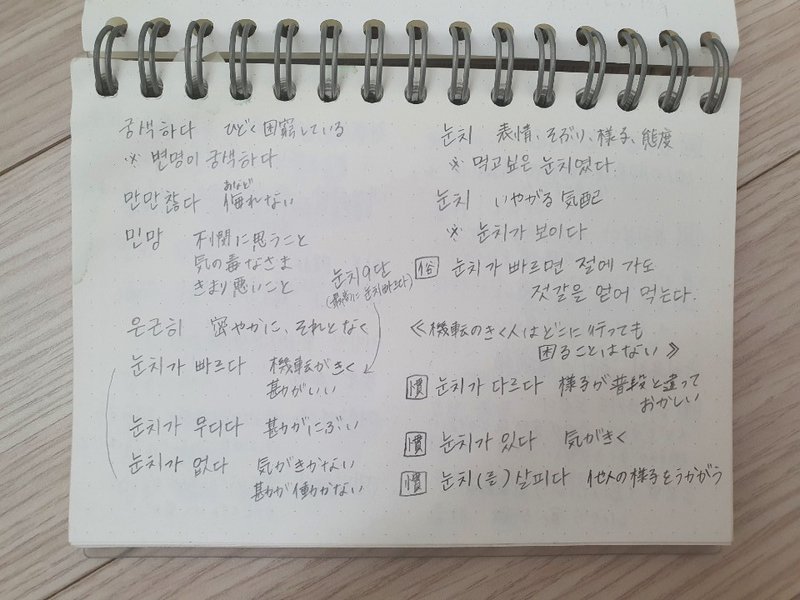 궁색하다 ひどく困窮している
※ 변명이 궁색하다
만만찮다 侮れない
あなど
민망 不憫に思うこと
気の毒なさま
きまり悪いこと
눈치 9단
(最高に 눈치빠르다)
은근히 密やかに、それとなく
눈치가 빠르다 機転がきく
勘がいい
눈치가 무디다 勘がにぶい
눈치가 없다 気がきかない
勘が働かない
눈치 表情、そぶり、様子、態度
※ 먹고싶은 눈치였다.
눈치 いやがる気配
※ 눈치가 보이다
俗 눈치가 빠르면 절에 가도
젓갈을 얻어 먹는다.
≪機転のきく人はどこに行っても
困ることはない≫
慣 눈치가 다르다 様子が普段と違って
おかしい
慣 눈치가 있다 気がきく
慣 눈치(를) 살피다 他人の様子をうかがう